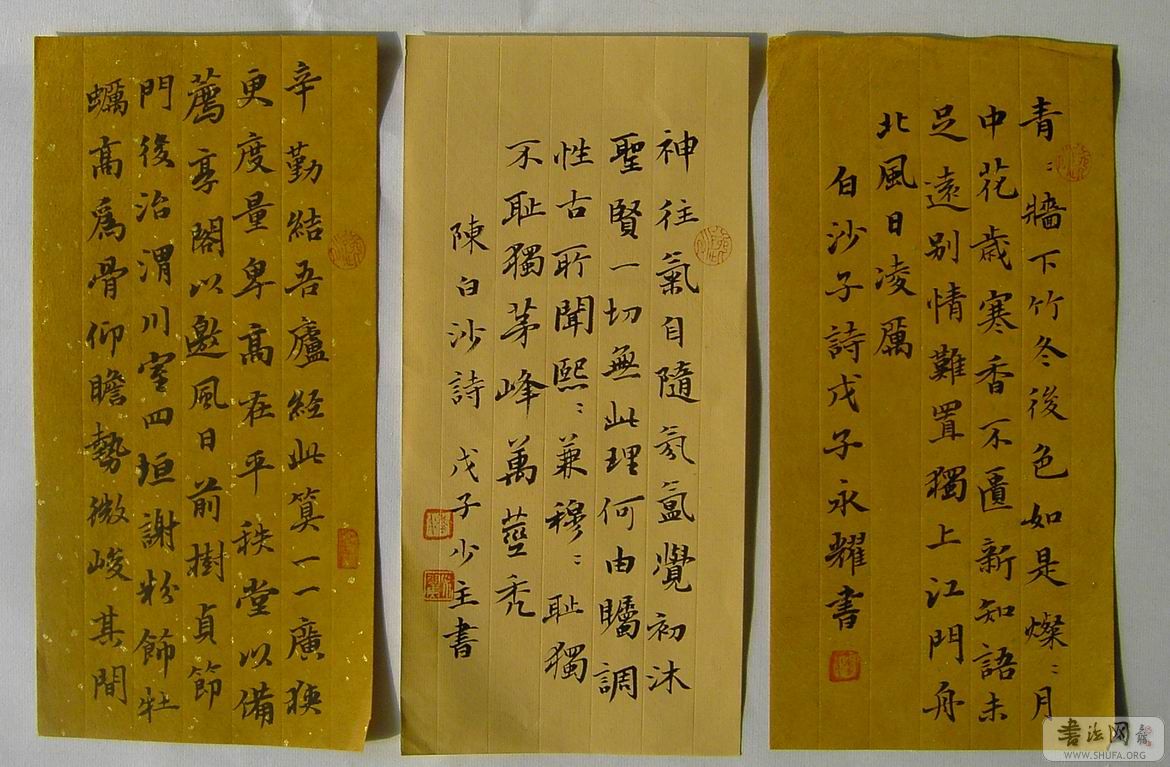 青〻牆下竹冬後色如是燦〻月
中花歲寒香不匱新知語未
足遠别情難置獨上江門舟
北風日凌厲
白沙子詩戊子永耀書
神往氣自隨氛氲覺初沐
聖賢一切無此理何由矚調
性古所聞熙〻兼穆〻恥獨
不恥獨茅峰萬莖秃
陳白沙詩 戊子少主書
辛勤結吾廬經此算一一廣狹
更度量卑高在平秩堂以備
薦享閣以邀風日前樹貞節
門後治渭川室四垣謝粉飾牡
蠣高爲骨仰瞻勢微峻其間
书法网
WWW.SHUFA.ORG